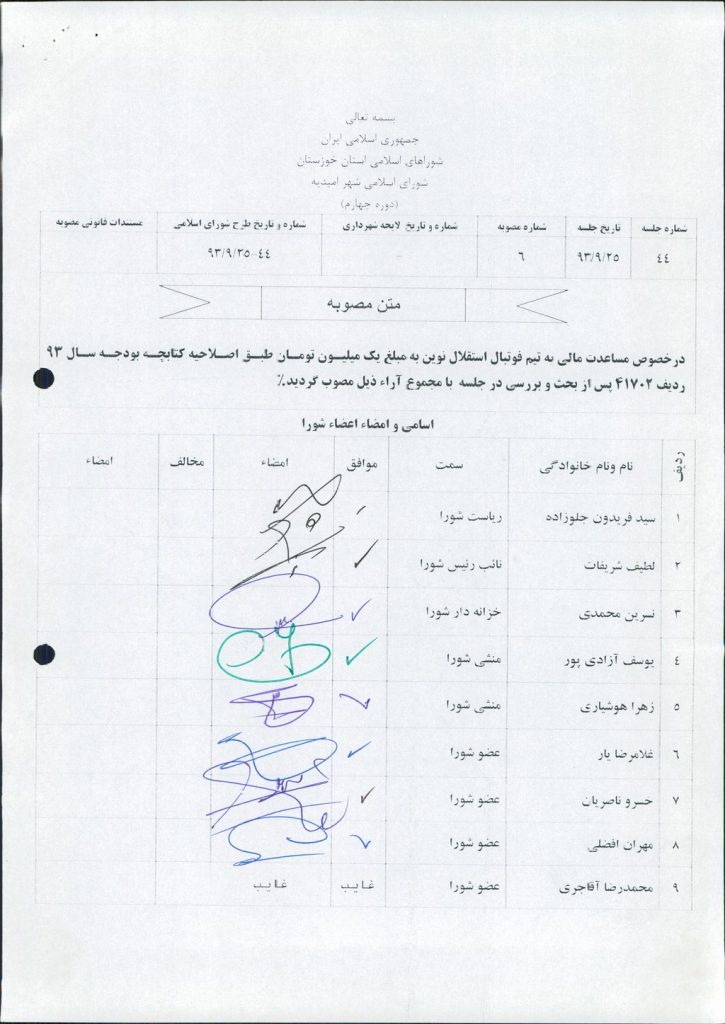 بسمه تعالی
جمهوری اسلامی ایران
شوراهای اسلامی استان خوزستان
شورای اسلامی شهر امیدیه
(دوره چهارم)
شماره جلسه تاریخ جلسه شماره مصوبه شماره و تاریخ لایحه شهرداری شماره و تاریخ طرح شورای اسلامی مستندات قانونی مصوبه
۴۴ ۹۳/۹/۲۵ ۶ - ۹۳/۹/۲۵-۴۴
متن مصوبه
درخصوص مساعدت مالی به تیم فوتبال استقلال نوین به مبلغ یک میلیون تومان طبق اصلاحیه کتابچه بودجه سال ۹۳
ردیف ۴۱۷۰۲ پس از بحث و بررسی در جلسه با مجموع آراء ذیل مصوب گردید.٪
اسامی و امضاء اعضاء شورا
ردیف نام ونام خانوادگی سمت موافق امضاء مخالف امضاء
۱ سید فریدون جلوزاده ریاست شورا
۲ لطیف شریفات نائب رئیس شورا
۳ نسرین محمدی خزانه دار شورا
۴ یوسف آزادی پور منشی شورا
۵ زهرا هوشیاری منشی شورا
۶ غلامرضا یار عضو شورا
۷ خسرو ناصریان عضو شورا
۸ مهران افضلی عضو شورا
۹ محمدرضا آقاجری عضو شورا غایب غایب